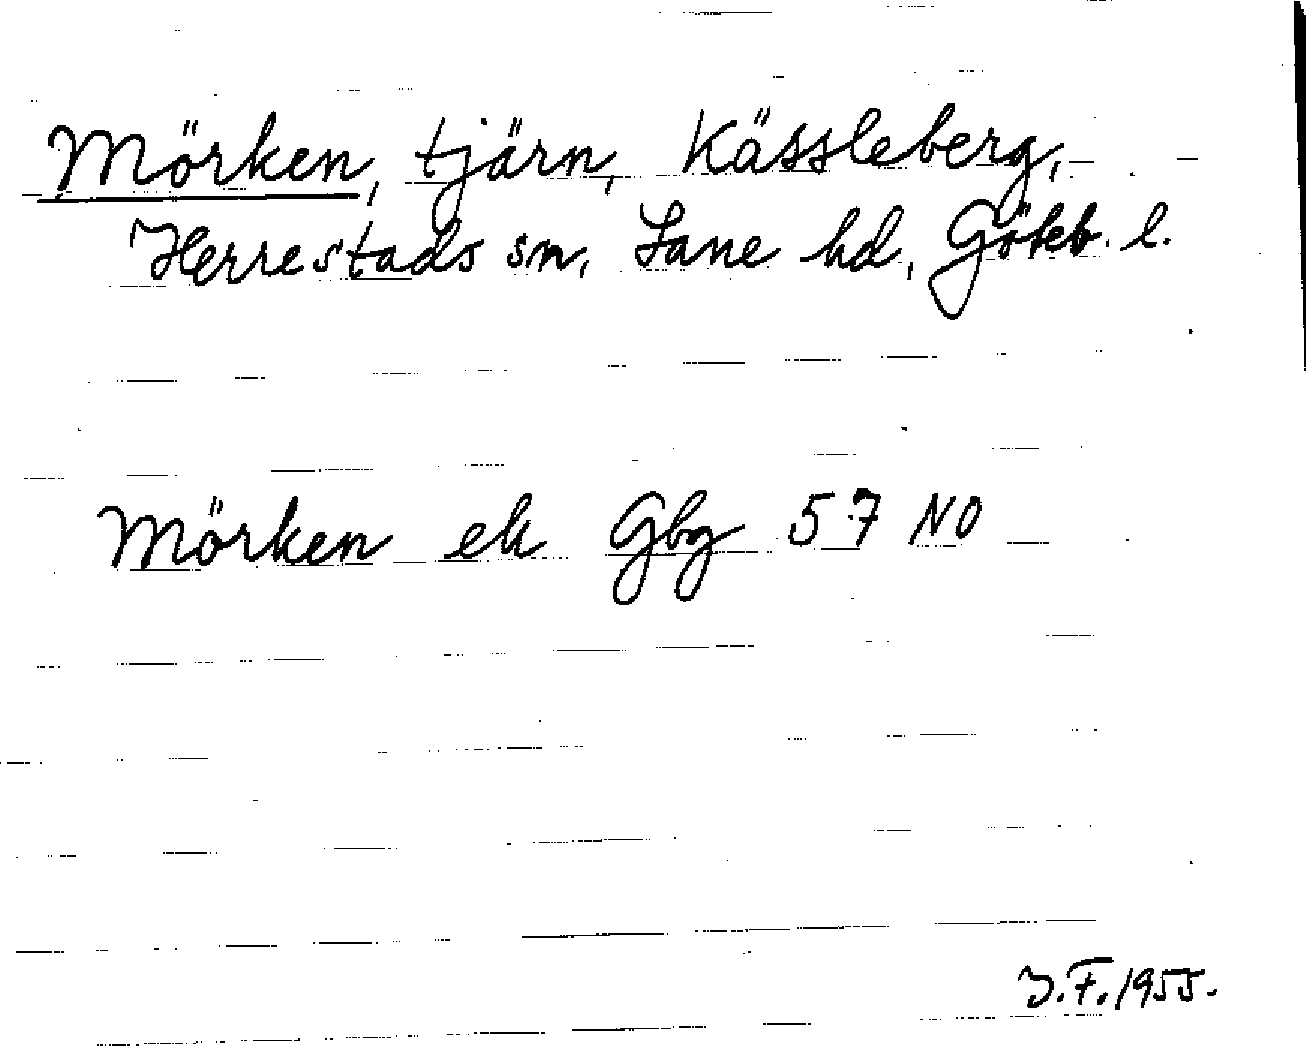 Mörken, tjärn, Kässleberg,
Herrestads sn, Lane hd, Göteb. l.
Mörken ek Gbg 57 NO
J.F. 1955.